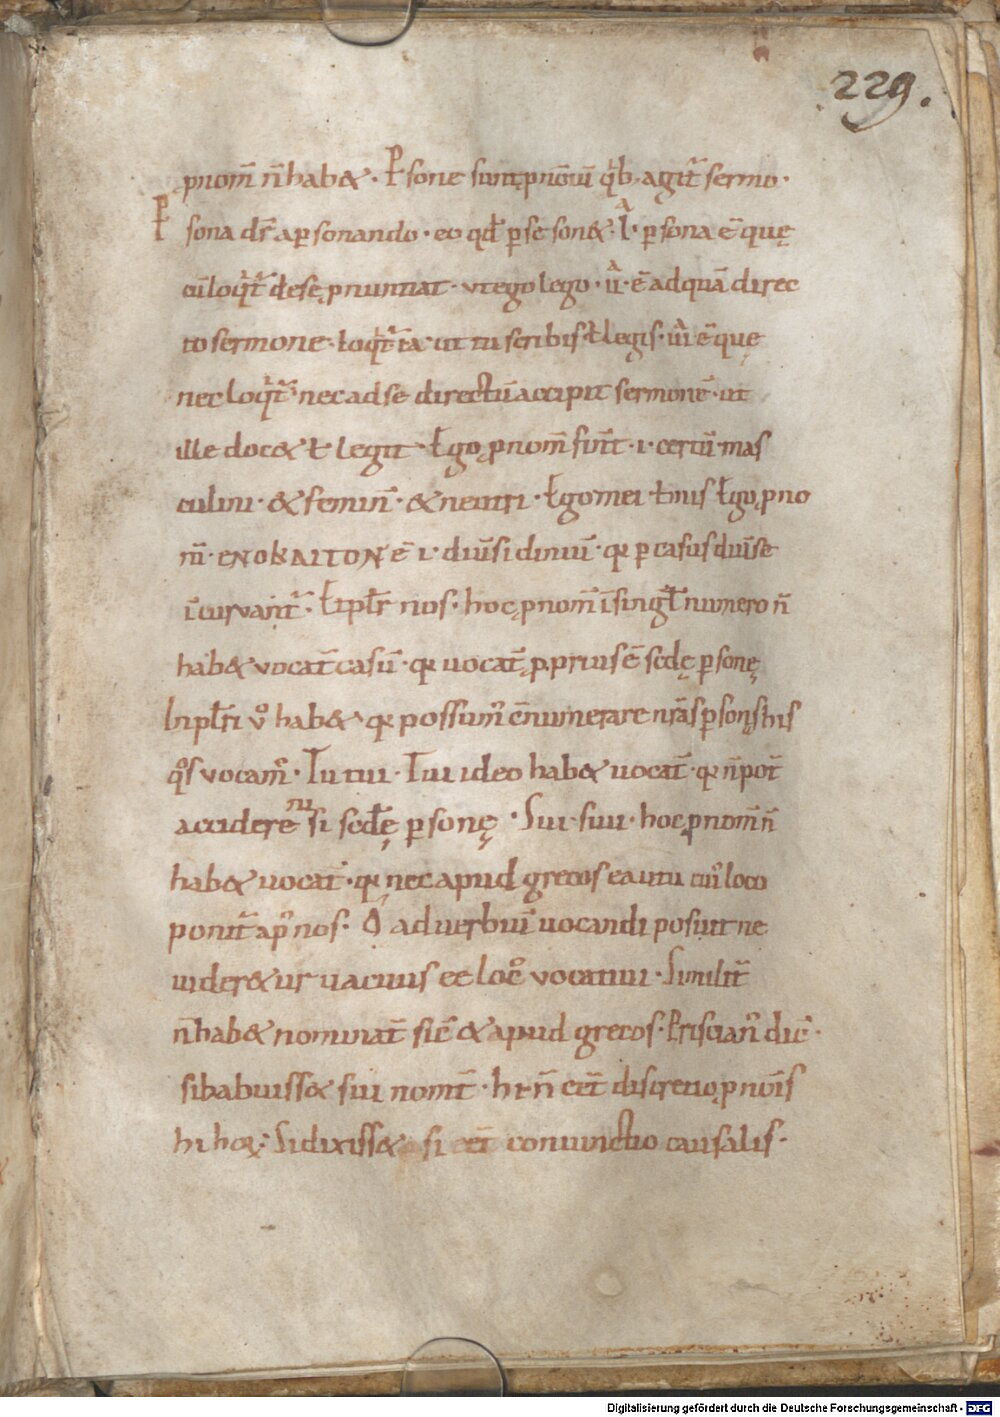 229.
pnom̄ n̄ habꝫ. Psone sunt pnoūi qͥb, agit̄ sermo.
Psona dr̄ a psonando. eo qd̄ p se sonꝫ. I. psona ē quę
cū loqͥt̄ de se pnuntiat. ut ego lego. ii. ē ad quā direc
to sermone. loqͥt̄ ut tu scribis ł legis. iii ē quę
nec loqͥt̄ nec ad se directū accipit sermonē. ut
ille docꝫ ł legit. Ego pnom̄ finit̄ .i. certū mas
culini. & feminī. & neutri. Ego mei ł mis Ego pno
m̄. ENOKAITON ē .i. diuīsi dinuū. qꝛ p casus duīse
īcuruant̄. Et plr̄ nos. hoc pnom̄ ī singl̄ numero n̄
habꝫ vocat̄ casū. qꝛ uocat̄ pprius ē scdę psonę
In plr̄i v̊ habꝫ qꝛ possum̄ ēnumerare nr̄as psonas his
qͦs vocam̄. Tu tui. Tu ideo habꝫ uocat̄. qꝛ n̄ pot̄
accidere nisi scdę psonę. Sui sui. hoc pnom̄ n̄
habꝫ uocat̄. qꝛ nec apud grecos eautu cui' loco
ponit̄ ap' nos. O aduerbiū uocandi posuit ne
uiderꝫur uacuus ee loc' vocatiui. Similit̄
n̄ habꝫ nominat̄ sic̄ & apud grecos. Priscian' dic̄.
si habuissꝫ sui nomt̄. hi n̄ eēt discretio pnoīs
hi hę. Si dixissꝫ si eēt coniunctio causalis.
Digitalisierung gefördert durch die Deutsche Forschungsgemeinschaft - DFG